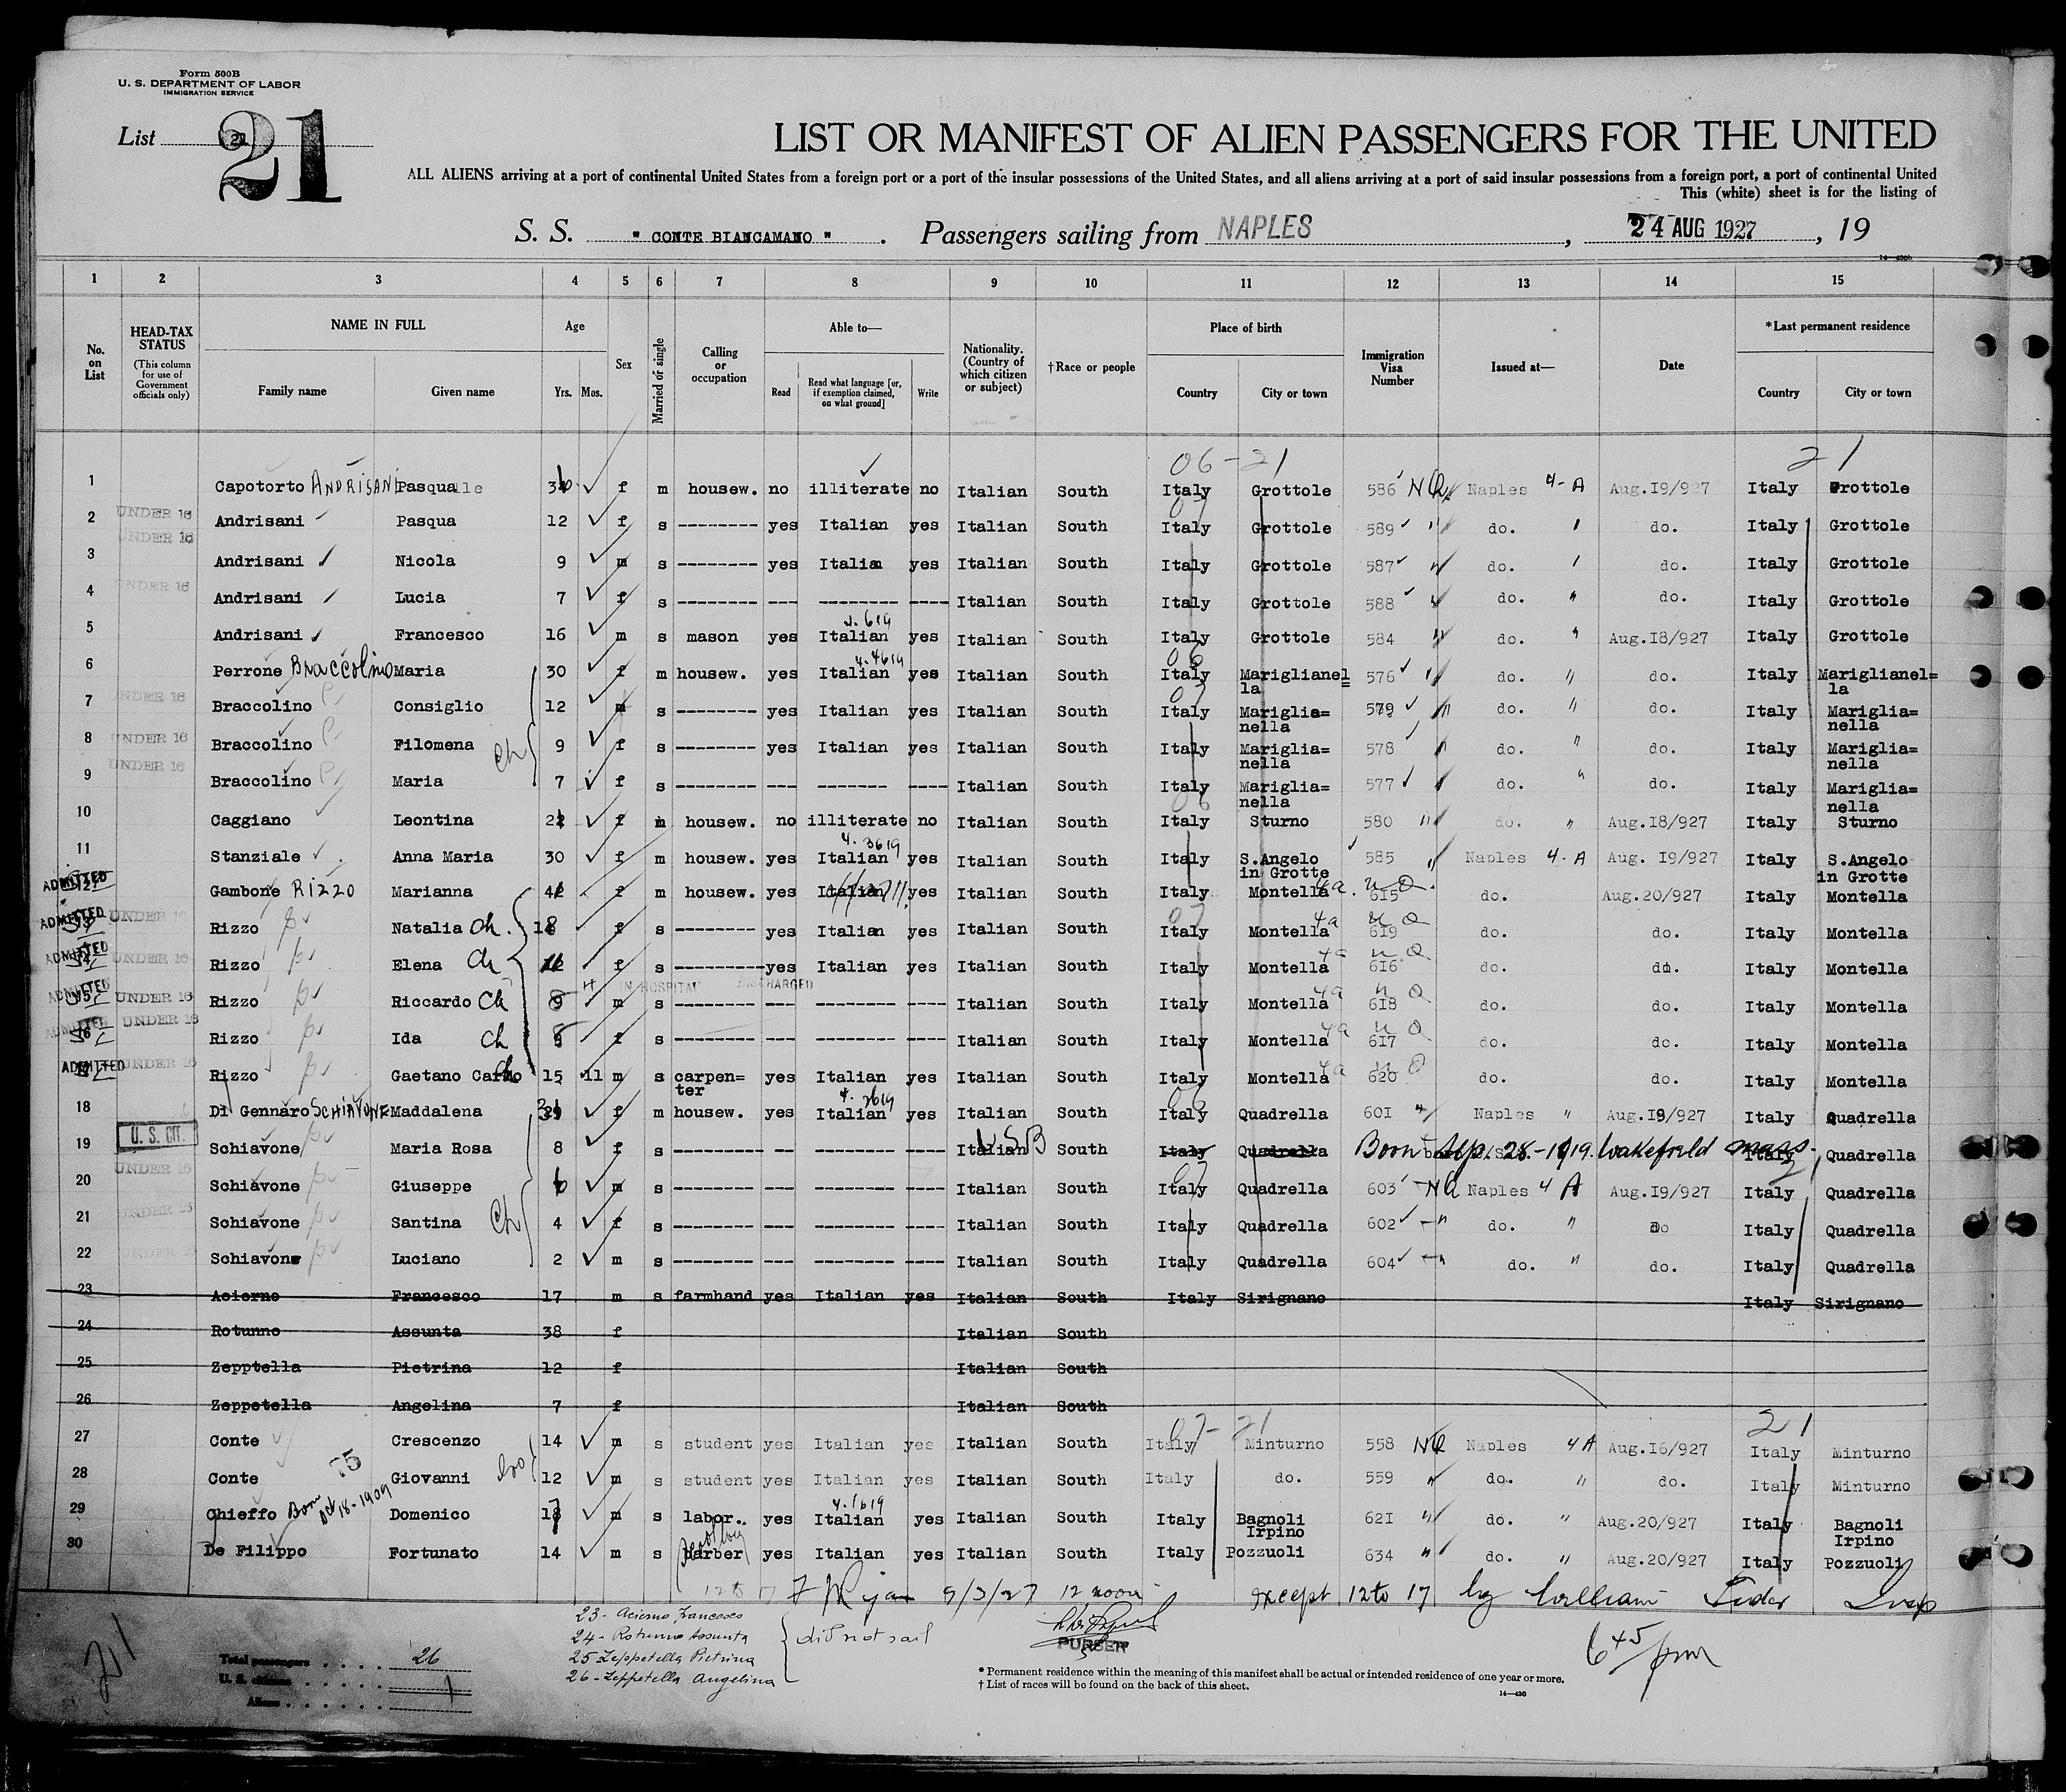 Form 500B
U. S. DEPARTMENT OF LABOR
IMMIGRATION SERVICE
List 21
21
LIST OR MANIFEST OF ALIEN PASSENGERS FOR THE UNITED
ALL ALIENS arriving at a port of continental United States from a foreign port or a port of the insular possessions of the United States, and all aliens arriving at a port of said insular possessions from a foreign port, a port of continental United
This (white) sheet is for the listing of
S. S. "CONTE BIANCAMANO". Passengers sailing from NAPLES, 24 AUG 1927, 19
1 2 3 4 5 6 7 8 9 10 11 12 13 14 15
No. on List
HEAD-TAX STATUS (This column for use of Government officials only)
NAME IN FULL Family name Given name
Age Yrs. Mos.
Sex
Married or single
Calling or occupation
Able to— Read Read what language [or, if exemption claimed, on what ground] Write
Nationality. (Country of which citizen or subject)
†Race or people
Place of birth Country City or town
Immigration Visa Number
Issued at—
Date
*Last permanent residence Country City or town
06-21 21
1 Capotorto ANDRISANI Pasqualle f m housew. no illiterate no Italian South Italy Grottole 586 NQ Naples 4-A Aug.19/927 Italy Grottole
2 UNDER 16 Andrisani Pasqua 12 f s -------- yes Italian yes Italian South Italy Grottole 589 " do. do. Italy Grottole
3 UNDER 16 Andrisani Nicola 9 m s -------- yes Italian yes Italian South Italy Grottole 587 " do. do. Italy Grottole
4 UNDER 16 Andrisani Lucia 7 f s -------- --- -------- ---- Italian South Italy Grottole 588 " do. " do. Italy Grottole
5 Andrisani Francesco 16 m s mason yes Italian yes Italian South Italy Grottole 584 " do. " Aug.18/927 Italy Grottole
6 Perrone Braccolino Maria 30 f m housew. yes Italian yes Italian South Italy Mariglianella 576 " do. " do. Italy Mariglianel=la
7 UNDER 16 Braccolino Consiglio 12 m s -------- yes Italian yes Italian South Italy Mariglia=nella 579 " do. " do. Italy Mariglia=nella
8 UNDER 16 Braccolino Filomena ch 9 f s -------- yes Italian yes Italian South Italy Mariglia=nella 578 " do. " do. Italy Mariglia=nella
9 UNDER 16 Braccolino Maria 7 f s -------- --- ------- ---- Italian South Italy Mariglia=nella 577 " do. " do. Italy Mariglia=nella
10 Caggiano Leontina f m housew. no illiterate no Italian South Italy Sturno 580 " do. " Aug.18/927 Italy Sturno
11 Stanziale Anna Maria 30 f m housew. yes Italian yes Italian South Italy S.Angelo in Grotte 585 " Naples 4-A Aug. 19/927 Italy S.Angelo in Grotte
ADMITTED 12 Gambone RIZZO Marianna f m housew. yes Italian yes Italian South Italy Montella 615 do. Aug.20/927 Italy Montella
ADMITTED 13 UNDER 16 Rizzo Natalia ch. f s -------- yes Italian yes Italian South Italy Montella 4a 619 do. do. Italy Montella
ADMITTED 14 UNDER 16 Rizzo Elena ch f s -------- yes Italian yes Italian South Italy Montella 4a 616 do. do. Italy Montella
IN HOSPITAL DISCHARGED
ADMITTED 15 UNDER 16 Rizzo Riccardo ch m s -------- --- -------- ---- Italian South Italy Montella 4a 618 do. do. Italy Montella
ADMITTED 16 UNDER 16 Rizzo Ida ch f s -------- --- -------- ---- Italian South Italy Montella 4a 617 do. do. Italy Montella
ADMITTED UNDER 16 Rizzo Gaetano Carmo 15 11 m s carpen=ter yes Italian yes Italian South Italy Montella 4a 620 do. do. Italy Montella
18 Di Gennaro SCHIAVONE Maddalena f m housew. yes Italian yes Italian South Italy Quadrella 601 " Naples " Aug.19/927 Italy Quadrella
19 U. S. CIT. Schiavone Maria Rosa 8 f s -------- -- -------- ---- Italian USB South Italy Quadrella Born Sep. 28-1919. Wakefield mass. Italy Quadrella
20 UNDER 16 Schiavone Giuseppe 6 m s -------- --- -------- ---- Italian South Italy Quadrella 603 NQ Naples 4 A Aug.19/927 Italy Quadrella
21 UNDER 16 Schiavone Santina ch 4 f s -------- --- -------- ---- Italian South Italy Quadrella 602 " do. " do Italy Quadrella
22 UNDER 16 Schiavone Luciano 2 m s -------- --- -------- ---- Italian South Italy Quadrella 604 " do. " do. Italy Quadrella
23 Acierno Francesco 17 m s farmhand yes Italian yes Italian South Italy Sirignano Italy Sirignano
24 Rotunno Assunta 38 f Italian South
25 Zepptella Pietrina 12 f Italian South
26 Zeppetella Angelina 7 f Italian South
07-21 21
27 Conte Crescenzo 14 m s student yes Italian yes Italian South Italy Minturno 558 NQ Naples 4 A Aug.16/927 Italy Minturno
28 Conte Giovanni bro 12 m s student yes Italian yes Italian South Italy do. 559 " do. " do. Italy Minturno
29 Chieffo Born Oct 18-1909 Domenico m s labor.. yes Italian yes Italian South Italy Bagnoli Irpino 621 " do. " Aug.20/927 Italy Bagnoli Irpino
30 De Filippo Fortunato 14 m s barber yes Italian yes Italian South Italy Pozzuoli 634 " do. " Aug.20/927 Italy Pozzuoli
9/3/27 12 noon except 12 to 17 by William Insp
6 45/pm
23- Acierno Francesco
24- Rotunno Assunta
25 Zeppetella Pietrina
26- Zeppetella Angelina
did not sail
PURSER
21
Total passengers . . . . 26
U. S. citizens . . . . . 1
Aliens . . . . . .
* Permanent residence within the meaning of this manifest shall be actual or intended residence of one year or more.
† List of races will be found on the back of this sheet.
14—430